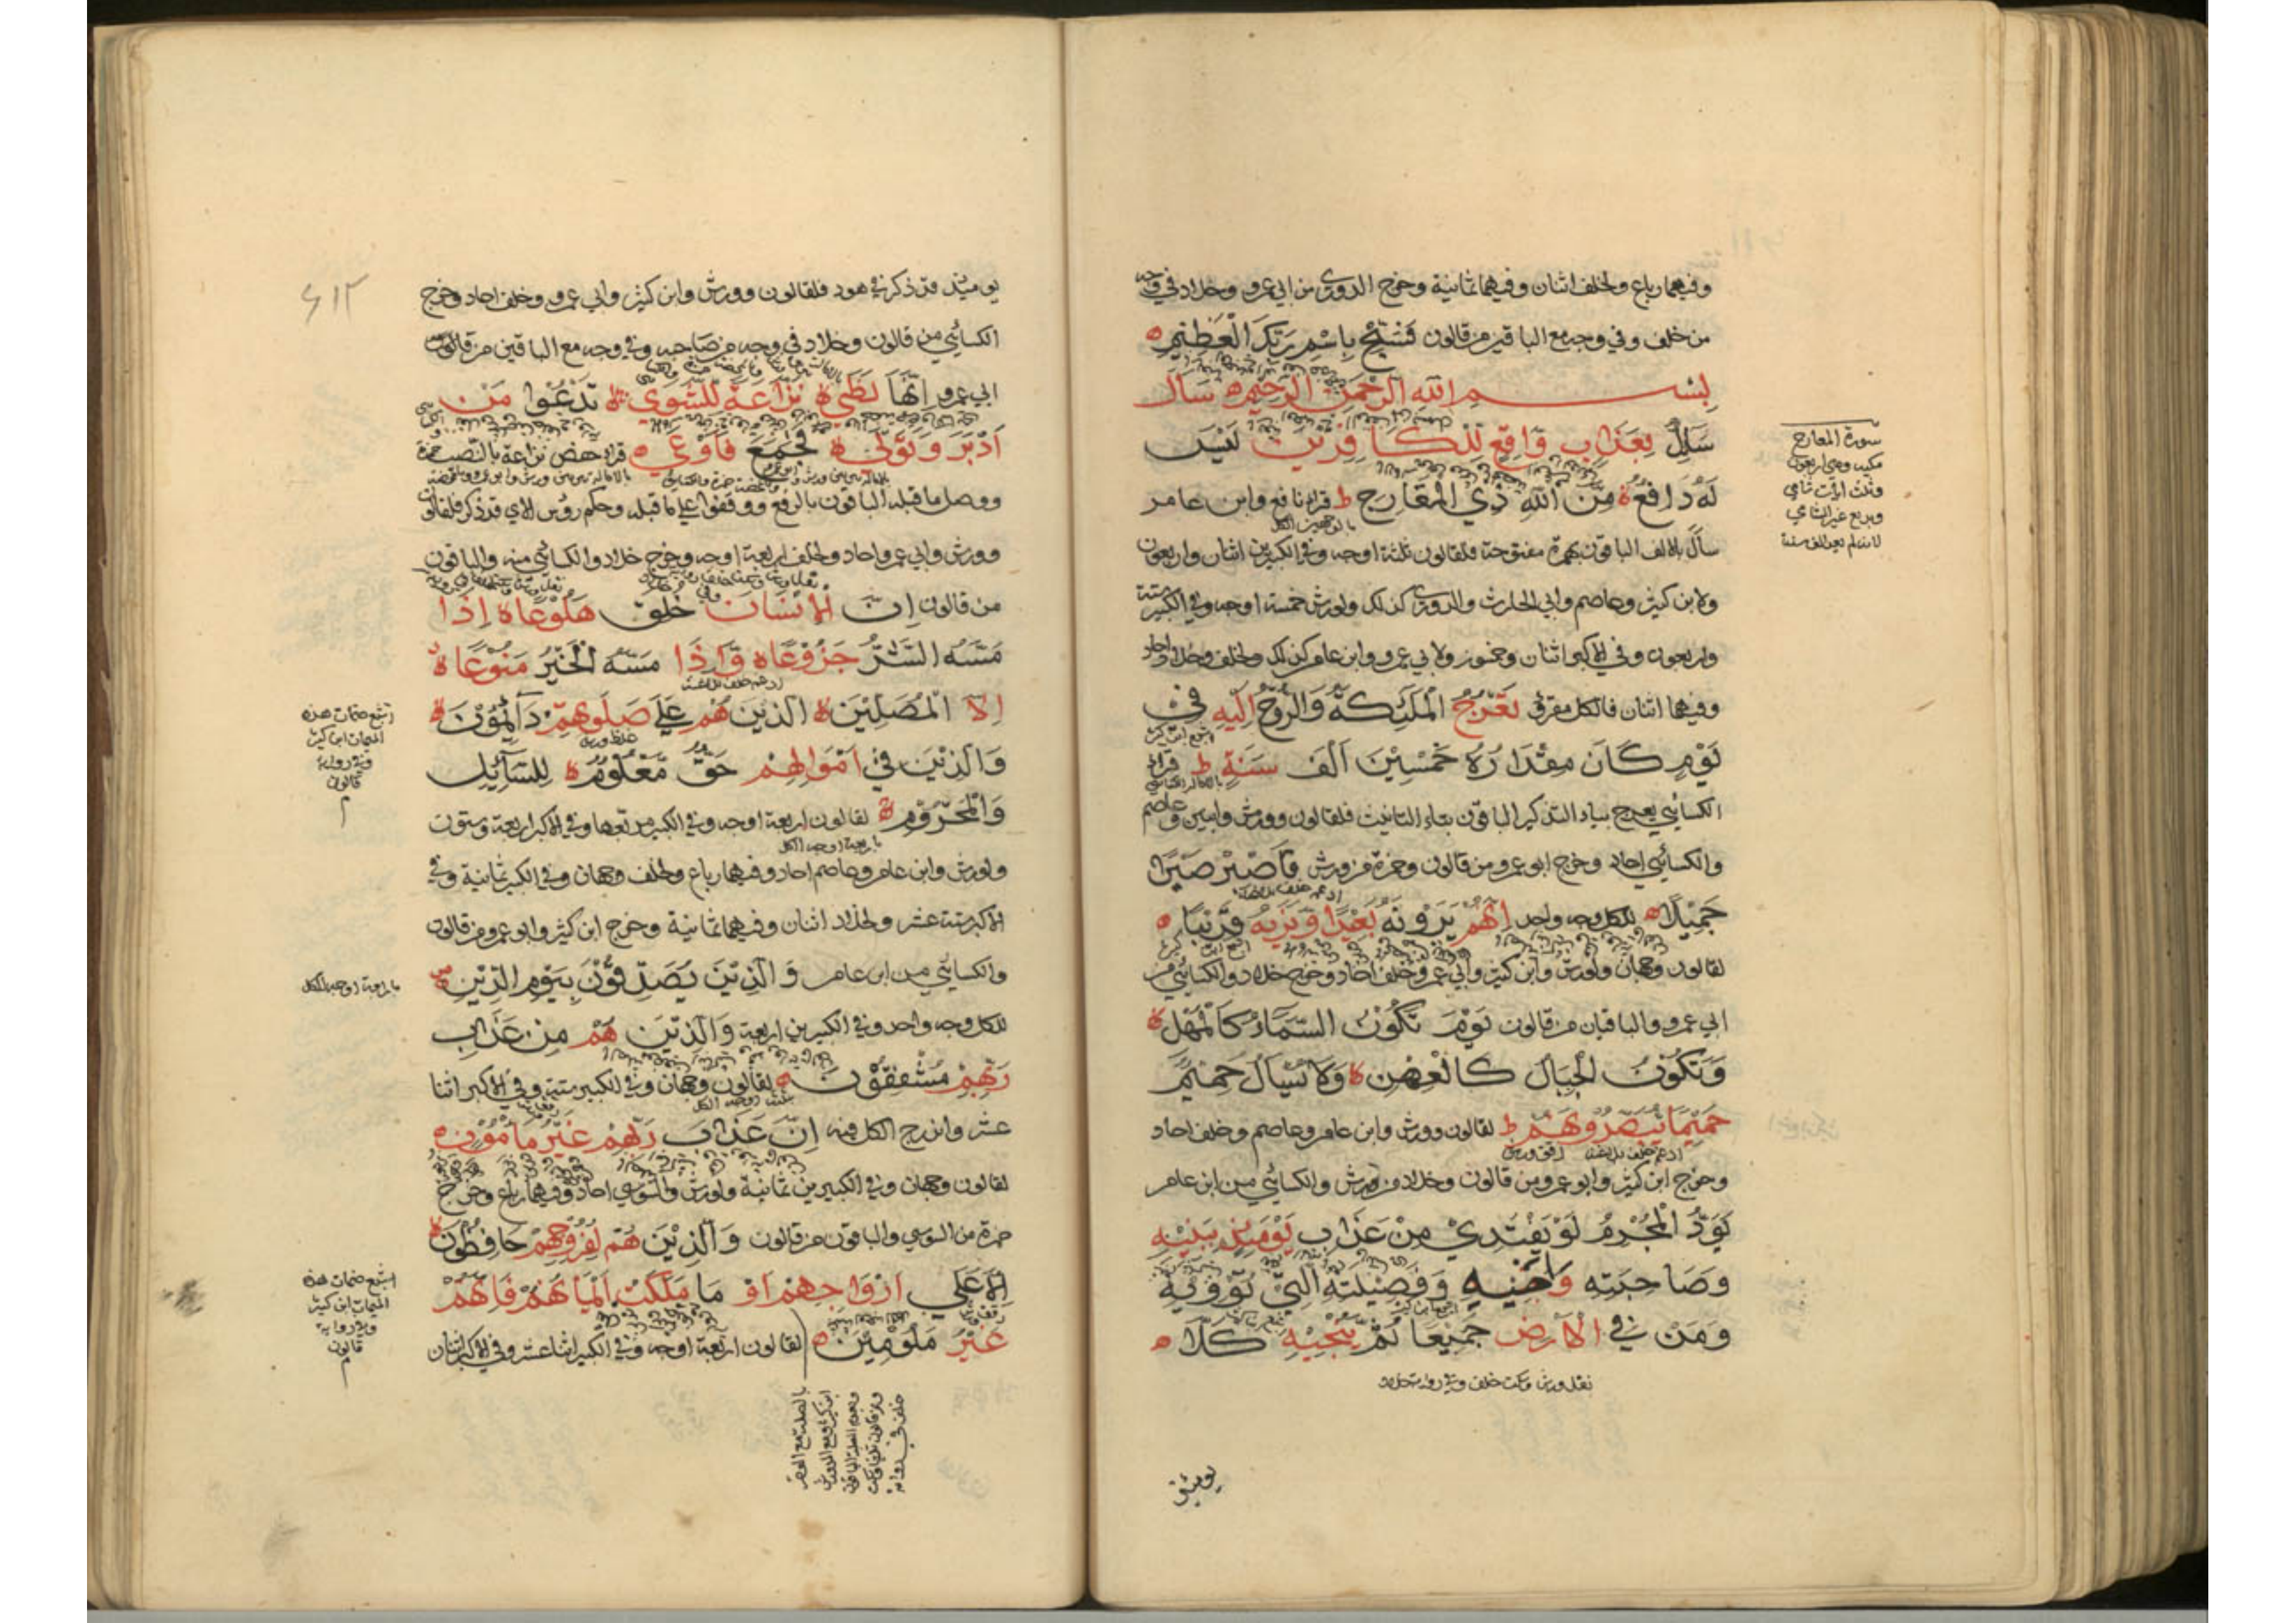 وفيهما رباع ولخلف اثنان وفيهما ثمانية وخرج الدوري من ابي عمرو وخلاد في وجه
من خلف وفي وجه مع الباقين من قالون فَسَبِّحْ بِاسْمِ رَبِّكَ الْعَظِيْمِ
بسم الله الرحمن الرحيم سَالَ
سَائِلٌ بِعَذَابٍ وَّاقِعٍ لِّلْكَافِرِيْنَ لَيْسَ
لَهُ دَافِعٌ مِّنَ اللّٰهِ ذِي الْمَعَارِجِ ط قراء نافع وابن عامر
سال بالالف الباقون بهمزة مفتوحة فلقالون ثلثة اوجه وفي الكبيرين اثنان واربعون
ولابن كثير وعاصم وابي الحارث والدوري كذلك ولورش خمسة اوجه وفي الكبير ستة
واربعون وفي الاكبر اثنان وخمسون ولابي عمرو وابن عامر كذلك ولخلف وخلاد واحد
وفيهما اثنان فالكل مفرق تَعْرُجُ الْمَلٰئِكَةُ وَالرُّوْحُ اِلَيْهِ فِيْ
يَوْمٍ كَانَ مِقْدَارُهُ خَمْسِيْنَ اَلْفَ سَنَةٍ ط قراء
الكسائي يعرج بياء التذكير الباقون بتاء التانيث فلقالون وورش وعاصم
والكسائي احاد وخرج ابو عمرو من قالون وحمزة من ورش فَاصْبِرْ صَبْرًا
جَمِيْلًا للكل وجه واحد اِنَّهُمْ يَرَوْنَهُ بَعِيْدًا وَّنَرٰيهُ قَرِيْبًا
لقالون وجهان ولورش وابن كثير وابي عمرو وخلف احاد وخرج خلاد والكسائي من
ابي عمرو والباقيان من قالون يَوْمَ تَكُوْنُ السَّمَاءُ كَالْمُهْلِ
وَتَكُوْنُ الْجِبَالُ كَالْعِهْنِ وَلَا يَسْئَلُ حَمِيْمٌ
حَمِيْمًا يُّبَصَّرُوْنَهُمْ ط لقالون وورش وابن عامر وعاصم وخلف احاد
وخرج ابن كثير وابو عمرو من قالون وخلاد من ورش والكسائي من ابن عامر
يَوَدُّ الْمُجْرِمُ لَوْ يَفْتَدِيْ مِنْ عَذَابِ يَوْمَئِذٍ بِبَنِيْهِ
وَصَاحِبَتِهِ وَاَخِيْهِ وَفَصِيْلَتِهِ الَّتِيْ تُؤْوِيْهِ
وَمَنْ فِي الْاَرْضِ جَمِيْعًا ثُمَّ يُنْجِيْهِ كَلَّا
نقل ورش وسكت خلف وفي رواية خلاد
يومئذ
سورة المعارج
مكية وهي اربعون
وثلث ايات شامي
واربع غير الشامي
٦١٢
يومئذ قد ذكر في هود فلقالون وورش وابن كثير وابي عمرو وخلف احاد وخرج
الكسائي من قالون وخلاد في وجه من صاحبه وفي وجه مع الباقين من قالون
ابي عمرو اِنَّهَا لَظٰى نَزَّاعَةً لِّلشَّوٰى تَدْعُوْا مَنْ
اَدْبَرَ وَتَوَلّٰى وَجَمَعَ فَاَوْعٰى قراء حفص نزاعة بالنصب
ووصل ما قبله الباقون بالرفع ووقفوا على ما قبله وحكم رؤس الآي قد ذكر فلقالون
وورش وابي عمرو احاد ولخلف اربعة اوجه وخرج خلاد والكسائي منه والباقون
من قالون اِنَّ الْاِنْسَانَ خُلِقَ هَلُوْعًا اِذَا
مَسَّهُ الشَّرُّ جَزُوْعًا وَّاِذَا مَسَّهُ الْخَيْرُ مَنُوْعًا
اِلَّا الْمُصَلِّيْنَ الَّذِيْنَ هُمْ عَلٰى صَلٰوتِهِمْ دَائِمُوْنَ
وَالَّذِيْنَ فِيْ اَمْوَالِهِمْ حَقٌّ مَّعْلُوْمٌ لِّلسَّائِلِ
وَالْمَحْرُوْمِ لقالون اربعة اوجه وفي الكبير مربعها وفي الاكبر اربعة وستون
ولورش وابن عامر وعاصم احاد وفيهما رباع ولخلف وجهان وفي الكبير ثمانية وفي
الاكبر ستة عشر ولخلاد اثنان وفيهما ثمانية وخرج ابن كثير وابو عمرو من قالون
والكسائي من ابن عامر وَالَّذِيْنَ يُصَدِّقُوْنَ بِيَوْمِ الدِّيْنِ
للكل وجه واحد وفي الكبيرين اربعة وَالَّذِيْنَ هُمْ مِنْ عَذَابِ
رَبِّهِمْ مُشْفِقُوْنَ لقالون وجهان وفي الكبير ستة وفي الاكبر اثنا
عشر واندرج الكل فيه اِنَّ عَذَابَ رَبِّهِمْ غَيْرُ مَاْمُوْنٍ
لقالون وجهان وفي الكبيرين ثمانية ولورش والسوسي احاد وفيهما رباع وخرج
حمزة من السوسي والباقون من قالون وَالَّذِيْنَ هُمْ لِفُرُوْجِهِمْ حَافِظُوْنَ
اِلَّا عَلٰى اَزْوَاجِهِمْ اَوْ مَا مَلَكَتْ اَيْمَانُهُمْ فَاِنَّهُمْ
غَيْرُ مَلُوْمِيْنَ لقالون اربعة اوجه وفي الكبير اثنا عشر وفي الاكبر اثنان
اشبع ضمات هذه
الميمات ابن كثير
وفي رواية
قالون
باربعة اوجه للكل
اشبع ضمات هذه
الميمات ابن كثير
وفي رواية
قالون